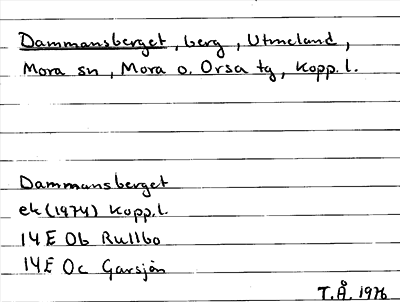 Dammansberget, berg, Utmeland,
Mora sn, Mora o. Orsa tg, Kopp. l.
Dammansberget
ek (1974) Kopp. l.
14 E 0b Rullbo
14 E 0c Garsjön
T.Å. 1976